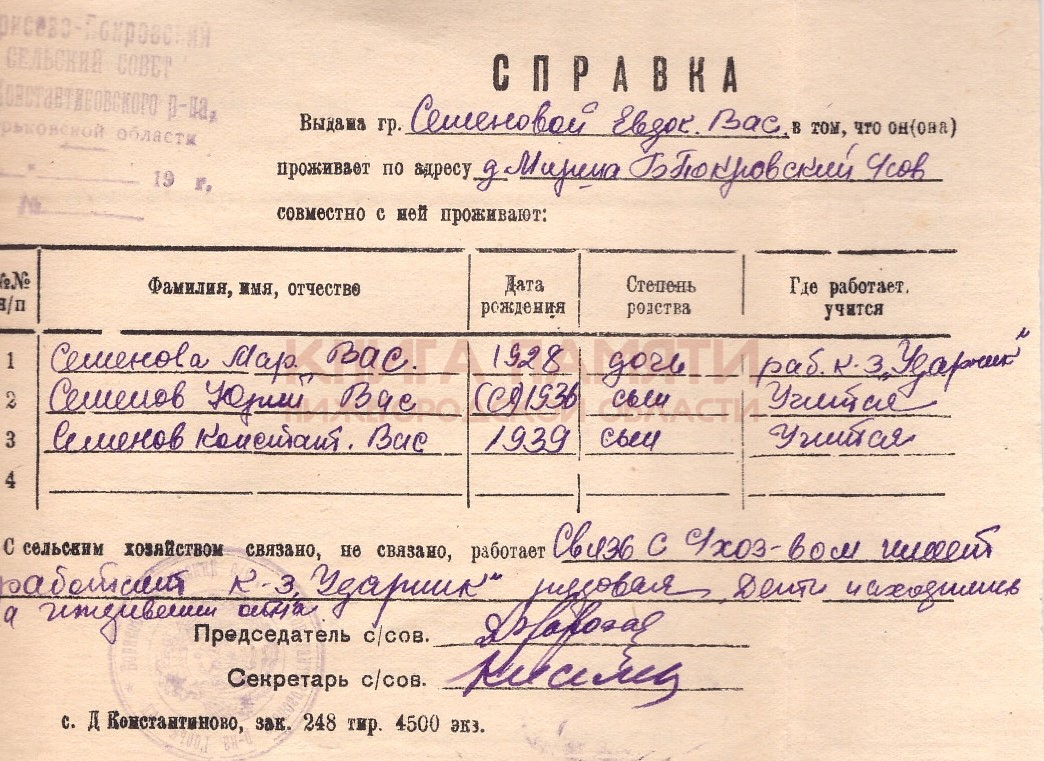 рисево-Покровский
СЕЛЬСКИЙ СОВЕТ
Константиновского р-на,
рьковской области
19 г.
№
СПРАВКА
Выдана гр. Семеновой Евдок. Вас. в том, что он(она)
проживает по адресу д. Мизина Б Покровский с/сов
совместно с ней проживают:
№№ п/п Фамилия, имя, отчество Дата рождения Степень родства Где работает, учится
1 Семенова Мар. Вас. 1928 дочь раб. к-з „Ударник"
2 Семенов Юрий Вас 1936 сын Учится
3 Семенов Констант. Вас 1939 сын Учится
4
КНИГА ПАМЯТИ
НИЖЕГОРОДСКОЙ ОБЛАСТИ
С сельским хозяйством связано, не связано, работает Связь с с/хоз-вом имеет
работает к-з „Ударник" рядовая Дети находились
а иждивении отца
Председатель с/сов.
Секретарь с/сов.
с. Д Константиново, зак. 248 тир. 4500 экз.